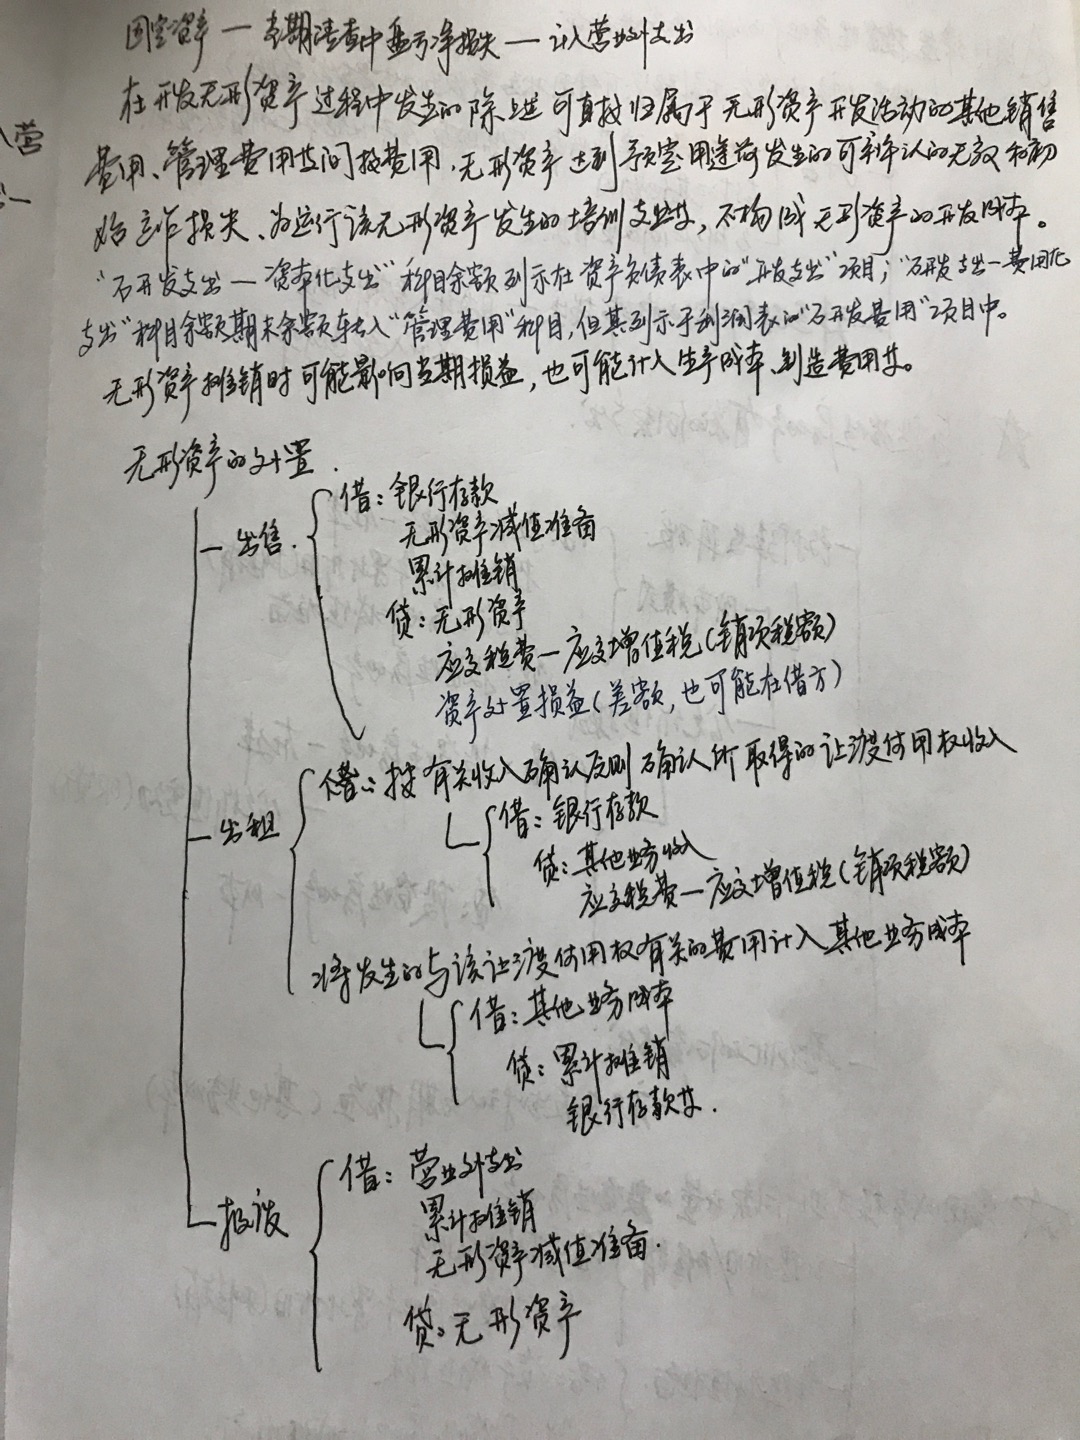 固定资产—本期清查中盘亏净损失—计入营业外支出
在开发无形资产过程中发生的除上述可直接归属于无形资产开发活动的其他销售
费用、管理费用等间接费用,无形资产达到预定用途前发生的可辨认的无效和初
始运作损失、为运行该无形资产发生的培训支出等,不构成无形资产的开发成本。
“研开发支出—资本化支出”科目余额列示在资产负债表中的“开发支出”项目;“研开发支出—费用化
支出”科目余额期末余额转入“管理费用”科目,但其列示于利润表的“研开发费用”项目中。
无形资产摊销时可能影响当期损益,也可能计入生产成本、制造费用等。
入营
无形资产的处置.
出售.
借:银行存款
无形资产减值准备
累计摊销
贷:无形资产
应交税费—应交增值税(销项税额)
资产处置损益(差额,也可能在借方)
出租
按有关收入确认原则确认所取得的让渡使用权收入
借:银行存款
贷:其他业务收入
应交税费—应交增值税(销项税额)
将发生的与该让渡使用权有关的费用计入其他业务成本
借:其他业务成本
贷:累计摊销
银行存款等.
报废
借:营业外支出
累计摊销
无形资产减值准备.
贷:无形资产